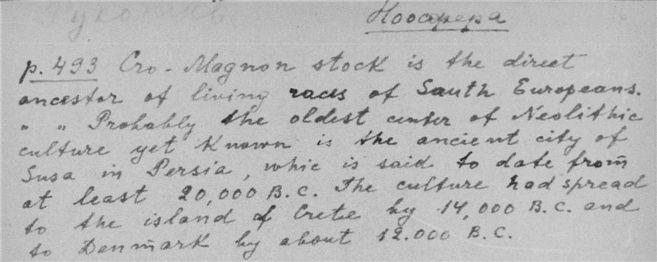 Ноосфера
p. 493 Cro-Magnon stock is the direct
ancestor of living races of South Europeans.
" " Probably the oldest center of Neolithic
culture yet known is the ancient city of
Susa in Persia, whic is said to date from
at least 20,000 B.C. The culture had spread
to the island of Crete by 14,000 B.C. and
to Denmark by about 12.000 B.C.